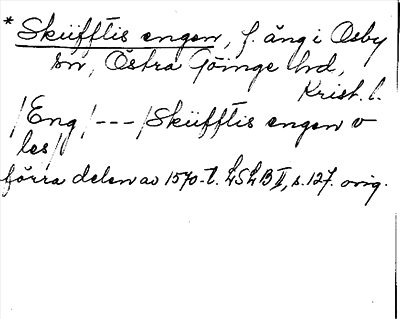 * Skùfftis engen, f. äng i Osby
sn, Östra Göinge hd,
Krist. l.
/Eng/ --- /Skùfftis engen v
les/
förra delen av 1570-t. LSLB II, s. 127. orig.